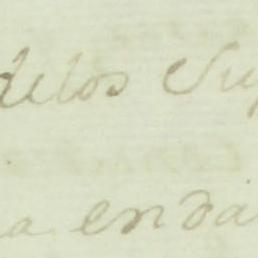 delos Sup
a en da